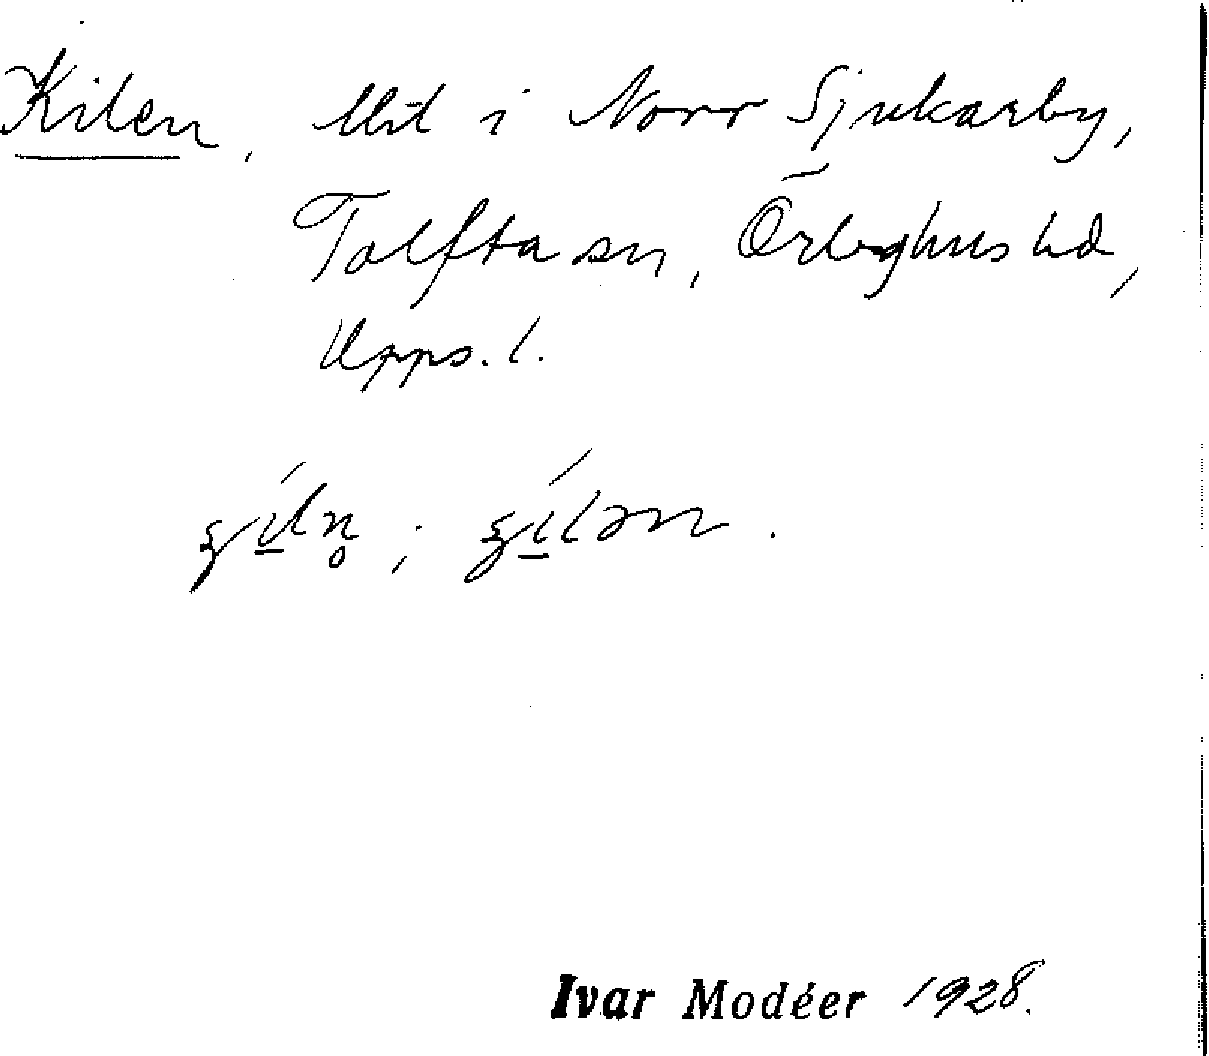 Kilen, i Norr Sjukarby,
Tolfta sn, Örbyhus hd,
Upps. l.
Ivar Modéer 1928.